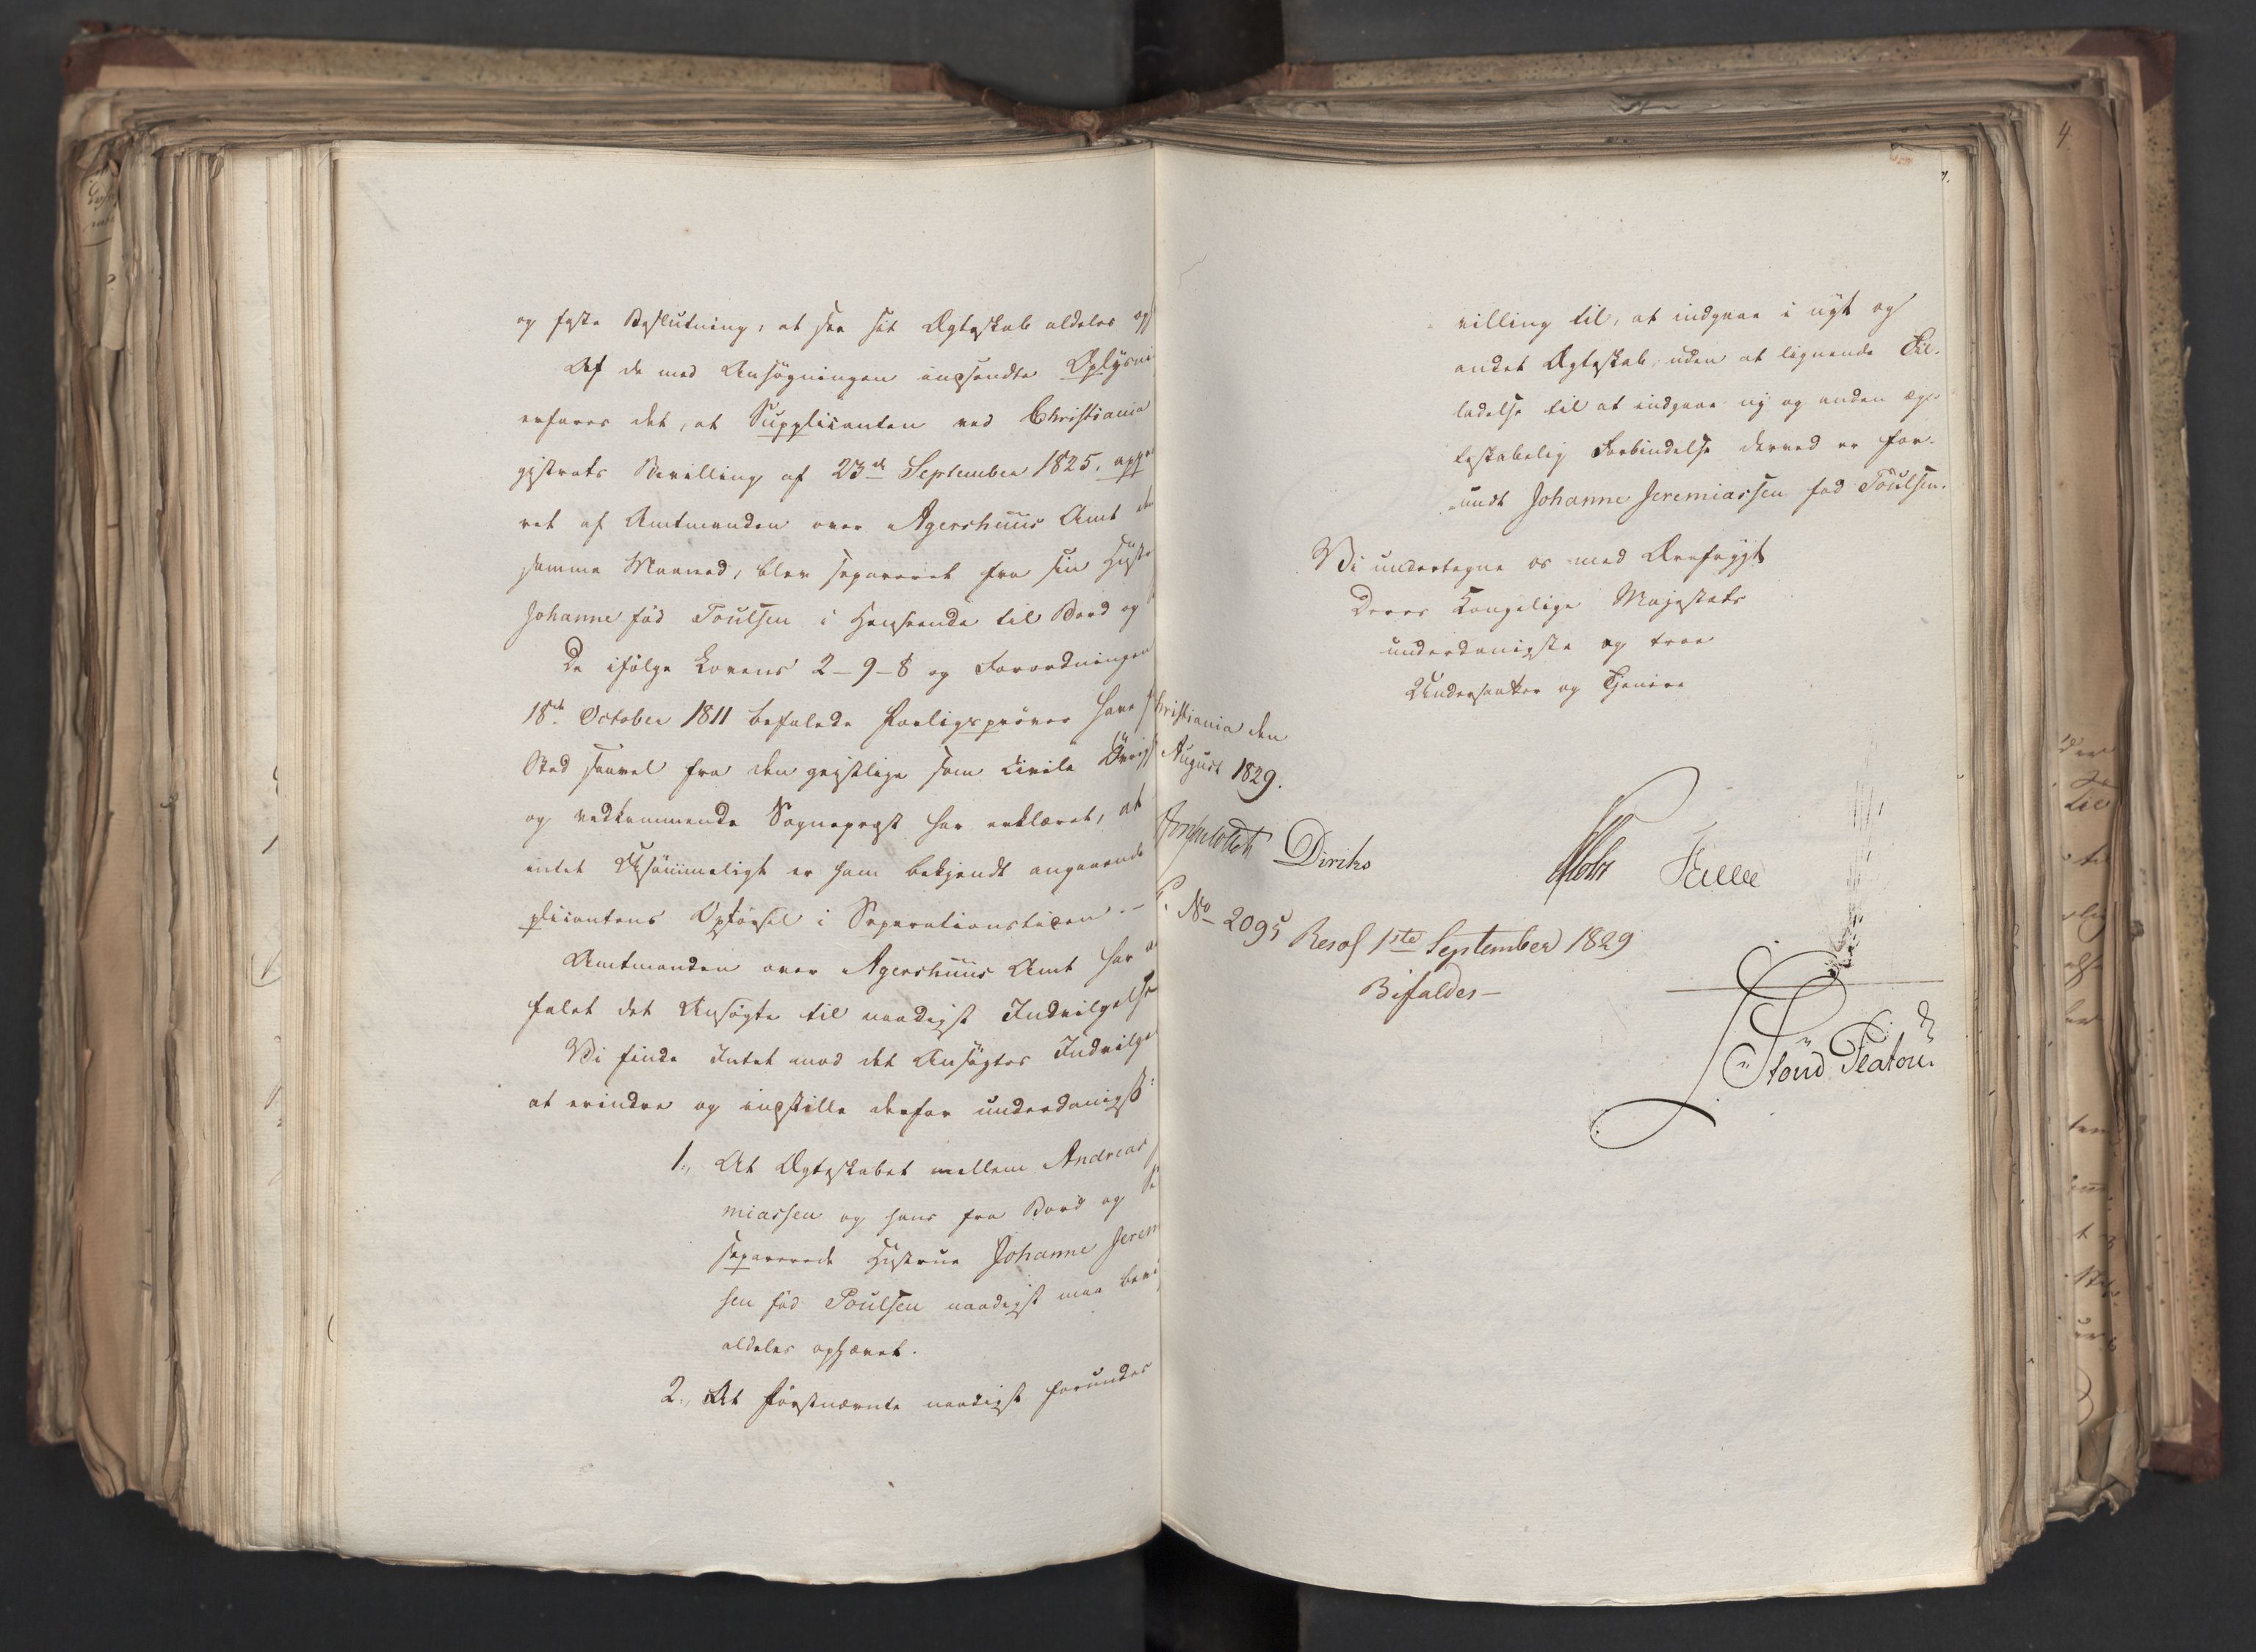 og faste Beslutning, at see sit Ægteskab aldeles op
Af de med Ansøgningen indsendte Oplysni
erfares det, at Supplicanten ved Christiania
gistrats Bevilling af 23de September 1825, appr
ret af Amtmanden over Agershuus Amt den
samme Maaned, blev separeret fra sin Hustr
Johanne fød Poulsen i Henseende til Bord og
De ifølge Lovens 2-9-8 og Forordningen
18de October 1811 befalede Forligsprøver have
Sted saavel fra den geistlige som civile Øvrigh
og vedkommende Sognepræst har erklæret, at
intet Usømmeligt er ham bekjendt angaaende
plicantens Opførsel i Separationstiden.-
Amtmanden over Agershuus Amt har
falet det Ansøgte til naadigst Indvilgelse
Vi finde Intet mod det Ansøgtes Indvilge
at erindre og indstille derfor underdanigst:
1., At Ægteskabet mellem Andreas J
miassen og hans fra Bord og Se
separerede Hustrue Johanne Jerem
sen fød Poulsen naadigst maa bevi
aldeles ophævet.
2., At førstnævnte naadigst forundes
villing til, at indgaae i nyt og
andet Ægteskab, uden at lignende Til-
ladelse til at indgaae ny og anden æg-
teskabelig Forbindelse derved er for-
undt Johanne Jeremiassen fød Poulsen.
Vi undertegne os med Ærefrygt
Deres Kongelige Majestæts
underdanigste og troe
Undersaatter og Tjenere
hristiania den
August 1829.
Diriks
Falbe
P. No 2095
Resol 1ste September 1829
Bifaldes-